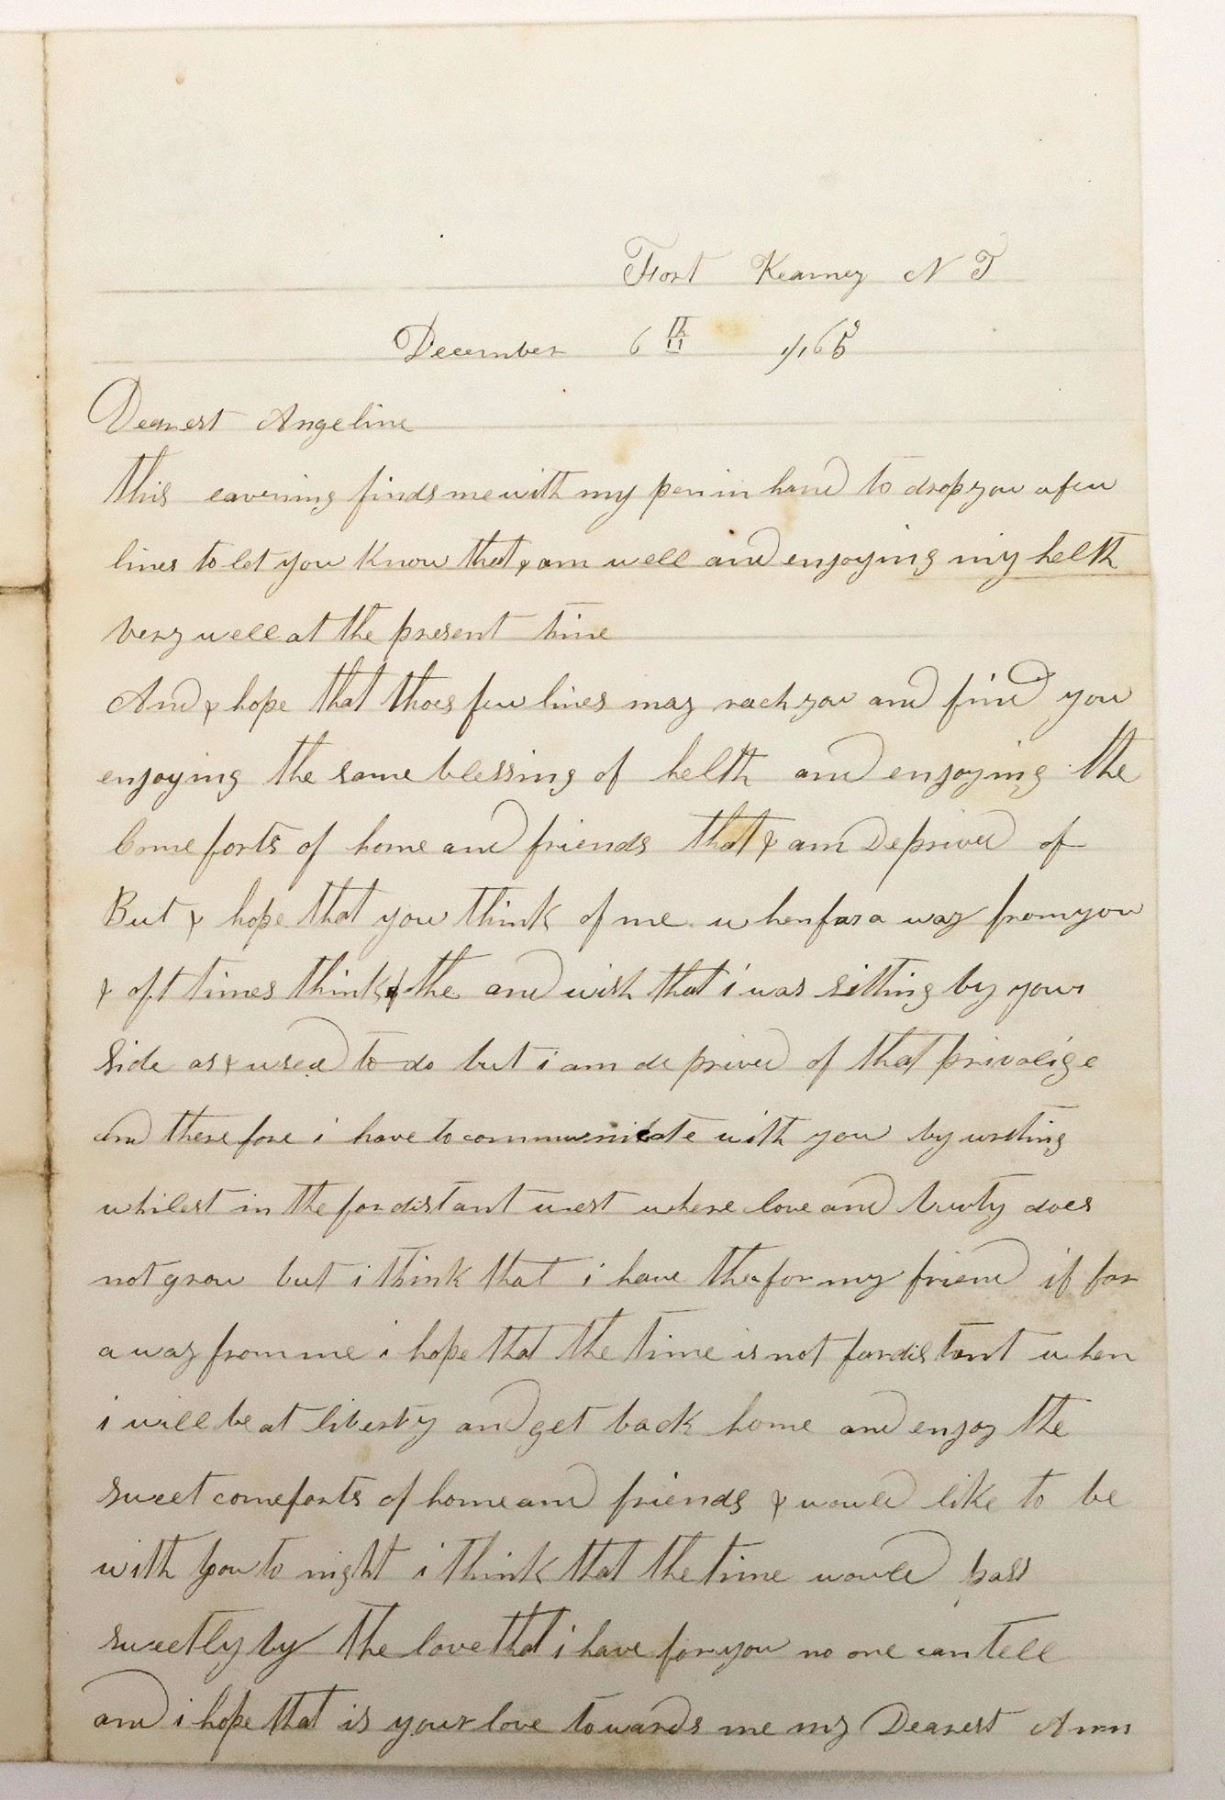 Fort Kearney N T
December 6th 1865
Dearest Angeline
this eavening finds me with my pen in hand to drop you a few
lines to let you know that & am well and enjoying my helth
very well at the present time
And & hope that thoes few lines may rach you and find you
enjoying the same blessing of helth and enjoying the
Comeforts of home and friends that & am Deprived of
But & hope that you think of me when far a way from you
& oft times think of the and wish that i was sitting by your
Side as & used to do but i am deprived of that privalige
and therefore i have to communicate with you by writing
whilest in the far distant west where love and buty does
not grow but i think that i have the for my friend if far
a way from me i hope that the time is not far distant when
i will be at liberty and get back home and enjoy the
sweet comeforts of home and friends & would like to be
with you to night i think that the time would pass
sweetly by the love that i have for you no one can tell
and i hope that is your love towards me my Dearest Ann